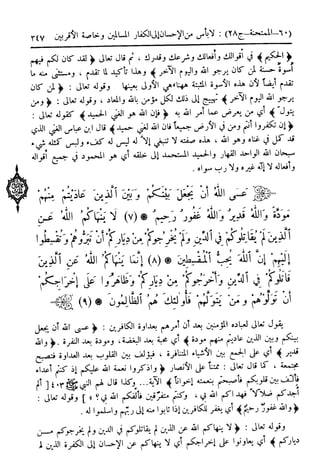 (٦٠-الممتحنة-ج٢٨) : لا بأس من الإحسان إلى الكفار المسالمين وخاصة الأقربين ٣٤٧
الحكيم ﴾ في أقوالك وأفعالك وشرعك وقدرك ، ثم قال تعالى ﴿ لقد كان لكم فيهم
أسوة حسنة لمن كان يرجو الله واليوم الآخر ﴾ وهذا تأكيد لما تقدم ، ومستثنى منه ما
تقدم أيضاً لأن هذه الأسوة المثبتة ههنا هي الأولى بعينها وقوله تعالى : ﴿ لمن كان
يرجو الله واليوم الآخر ﴾ تهييج إلى ذلك لكل مؤمن بالله والمعاد ، وقوله تعالى : ﴿ ومن
يتول ﴾ أي من يعرض عما أمر الله به ﴿ فإن الله هو الغني الحميد ﴾ كقوله تعالى :
﴿ إن تكفروا أنتم ومن في الأرض جميعاً فإن الله لغني حميد ﴾ قال ابن عباس الغني الذي
قد كمل في غناه وهو الله ، هذه صفته لا تنبغي إلا له ليس له كفء وليس كمثله شيء
سبحان الله الواحد القهار والحميد المستحمد إلى خلقه أي هو المحمود في جميع أقواله
وأفعاله لا إله غيره ولا رب سواه .
عَسَى اللَّهُ أَنْ يَجْعَلَ بَيْنَكُمْ وَبَيْنَ الَّذِينَ عَادَيْتُمْ مِنْهُمْ
مَوَدَّةً وَاللَّهُ قَدِيرٌ وَاللَّهُ غَفُورٌ رَحِيمٌ * (٧) لَا يَنْهَاكُمُ اللَّهُ عَنِ
الَّذِينَ لَمْ يُقَاتِلُوكُمْ فِي الدِّينِ وَلَمْ يُخْرِجُوكُمْ مِنْ دِيَارِكُمْ أَنْ تَبَرُّوهُمْ وَتُقْسِطُوا
إِلَيْهِمْ إِنَّ اللَّهَ يُحِبُّ الْمُقْسِطِينَ * (٨) إِنَّمَا يَنْهَاكُمُ اللَّهُ عَنِ الَّذِينَ
قَاتَلُوكُمْ فِي الدِّينِ وَأَخْرَجُوكُمْ مِنْ دِيَارِكُمْ وَظَاهَرُوا عَلَى إِخْرَاجِكُمْ
أَنْ تَوَلَّوْهُمْ وَمَنْ يَتَوَلَّهُمْ فَأُولَئِكَ هُمُ الظَّالِمُونَ * (٩)
يقول تعالى لعباده المؤمنين بعد أن أمرهم بعداوة الكافرين : ﴿ عسى الله أن يجعل
بينكم وبين الذين عاديتم منهم مودة ﴾ أي محبة بعد البغضة، ومودة بعد النفرة . ﴿ والله
قدير ﴾ أي على الجمع بين الأشياء المتنافرة ، فيؤلف بين القلوب بعد العداوة فتصبح
مجتمعة ، كما قال تعالى : ممتناً على الأنصار ﴿ واذكروا نعمة الله عليكم إذ كنتم أعداء
فألف بين قلوبكم فأصبحتم بنعمته إخواناً ﴾ الآية... وكذا قال لهم النبي : [ ألم
أجدكم ضلالاً فهداكم الله بي ، وكنتم متفرقين فألفكم الله بي ؟ ] وقوله تعالى :
﴿ والله غفور رحيم ﴾ أي يغفر للكافرين إذا تابوا منه إلى ربهم وأسلموا له .
وقوله تعالى : ﴿ لا ينهاكم الله عن الذين لم يقاتلوكم في الدين ولم يخرجوكم من
دياركم ﴾ أي يعاونوا على إخراجكم أي لا ينهاكم عن الإحسان إلى الكفرة الذين لم